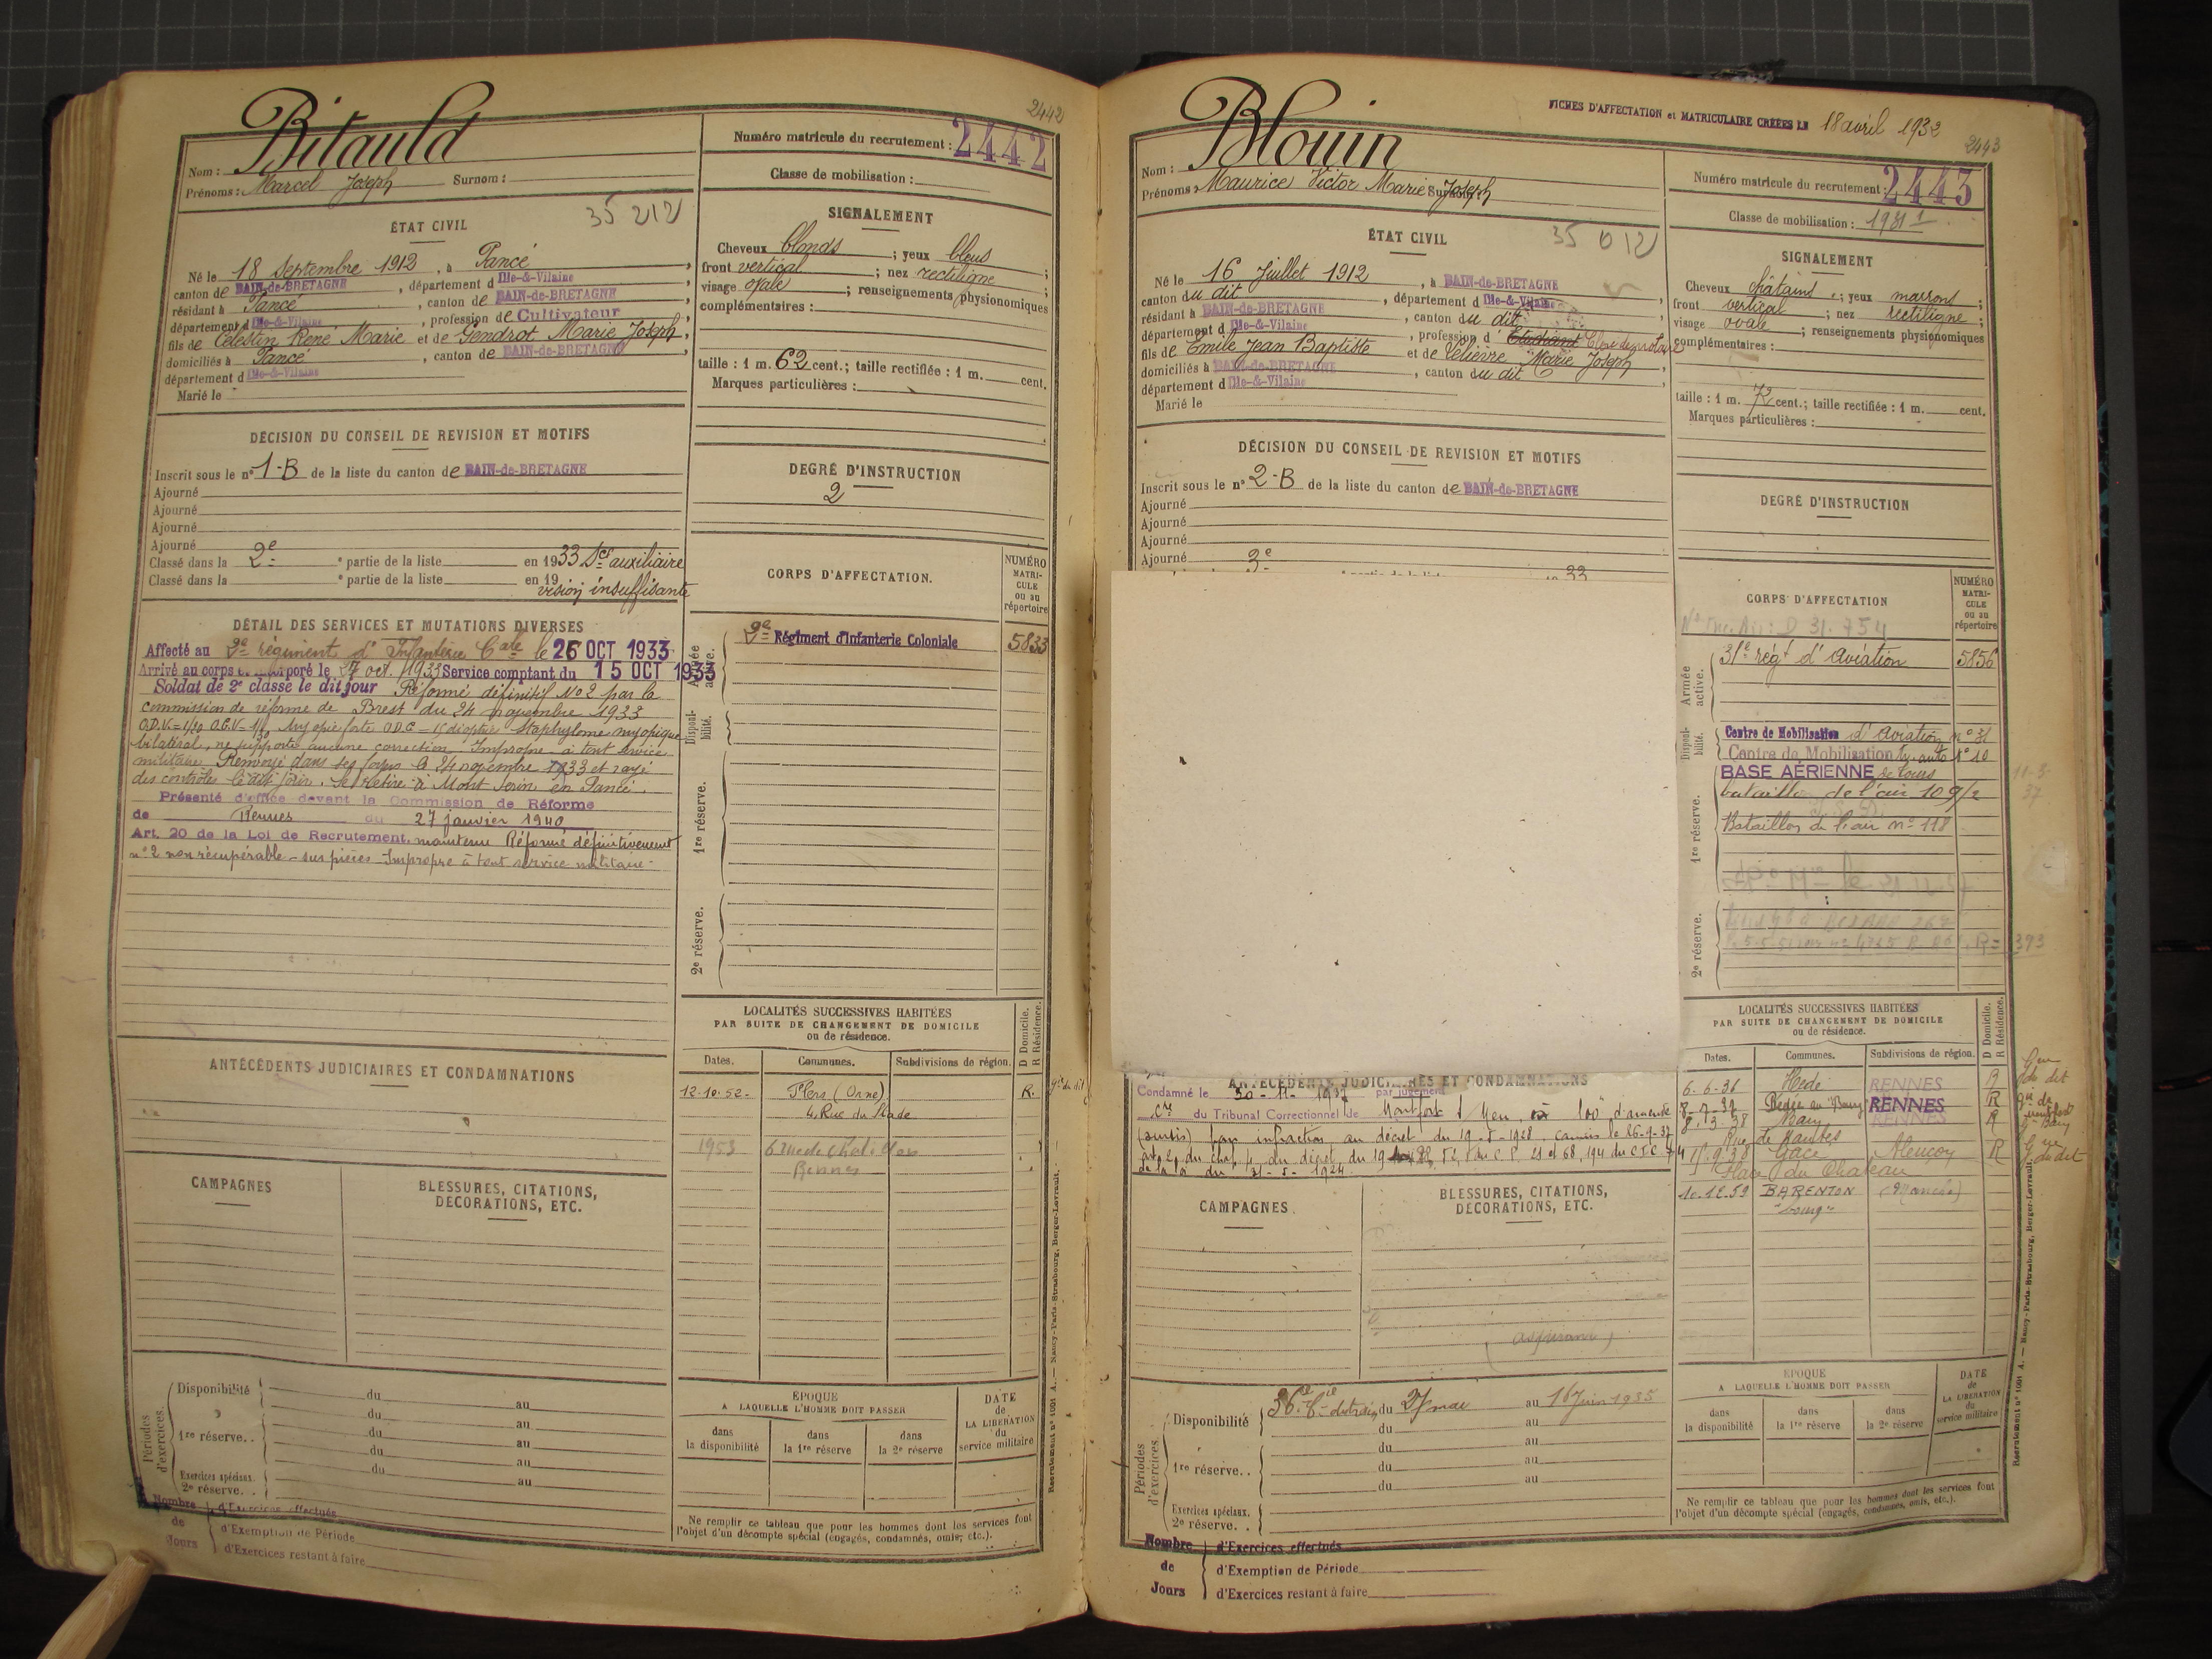 2442
Bitauld
Nom :
Prénoms : Marcel Joseph Surnom :
Numéro matricule du recrutement : 2442
Classe de mobilisation :
ÉTAT CIVIL
35 212
Né le 18 Septembre 1912, à Pancé,
canton de BAIN-de-BRETAGNE, département d Ille-&-Vilaine,
résidant à Pancé, canton de BAIN-de-BRETAGNE,
département d Ille-&-Vilaine, profession de Cultivateur,
fils de Célestin René Marie et de Gendrot Marie Joseph,
domiciliés à Pancé, canton de BAIN-de-BRETAGNE,
département d Ille-&-Vilaine
Marié le
SIGNALEMENT
Cheveux blonds ; yeux bleus ;
front vertical ; nez rectiligne ;
visage ovale ; renseignements physionomiques
complémentaires :
taille : 1 m. 62 cent.; taille rectifiée : 1 m. cent.
Marques particulières :
DÉCISION DU CONSEIL DE REVISION ET MOTIFS
Inscrit sous le n° 1-B de la liste du canton de BAIN-de-BRETAGNE
Ajourné
Ajourné
Ajourné
Ajourné
Classé dans la 2e partie de la liste en 1933 Sce auxiliaire
Classé dans la partie de la liste en 19
vision insuffisante
DEGRÉ D'INSTRUCTION
2
DÉTAIL DES SERVICES ET MUTATIONS DIVERSES
Affecté au 2e régiment d'Infanterie Cale le 26 OCT 1933
Arrivé au corps et incorporé le 27 oct. 1933 Service comptant du 15 OCT 1933
Soldat de 2e classe le dit jour Réformé définitif No 2 par la
commission de réforme de Brest du 24 novembre 1933
Myopie forte Staphylome myopique
bilatéral, ne supporte aucune correction. Impropre à tout service
militaire. Renvoyé dans ses foyers le 24 novembre 1933 et rayé
des contrôles le dit jour. Se retire à Mont Serin en Pancé.
Présenté d'office devant la Commission de Réforme
de Rennes du 27 janvier 1940
Art. 20 de la Loi de Recrutement. maintenu Réformé définitivement
n° 2 non récupérable - sur pièces - Impropre à tout service militaire -
CORPS D'AFFECTATION.
NUMÉRO MATRICULE ou au répertoire
Armée active.
2e Régiment d'Infanterie Coloniale 5833
Disponibilité.
1re réserve.
2e réserve.
LOCALITÉS SUCCESSIVES HABITÉES
PAR SUITE DE CHANGEMENT DE DOMICILE
ou de résidence.
D Domicile. R Résidence.
Dates. Communes. Subdivisions de région.
12-10-52- Flers (Orne) R.
4, Rue du Stade
1953
Rennes
ANTÉCÉDENTS JUDICIAIRES ET CONDAMNATIONS
CAMPAGNES
BLESSURES, CITATIONS,
DÉCORATIONS, ETC.
Périodes d'exercices.
Disponibilité du au
du au
1re réserve.. du au
du au
Exercices spéciaux. du au
2e réserve. .
Nombre de Jours
d'Exercices effectués
d'Exemption de Période
d'Exercices restant à faire
ÉPOQUE
A LAQUELLE L'HOMME DOIT PASSER
dans la disponibilité
dans la 1re réserve
dans la 2e réserve
DATE de LA LIBÉRATION du service militaire
Ne remplir ce tableau que pour les hommes dont les services font
l'objet d'un décompte spécial (engagés, condamnés, omis, etc.).
Recrutement n° 1001 A. — Nancy-Paris-Strasbourg, Berger-Levrault.
FICHES D'AFFECTATION et MATRICULAIRE CRÉÉES LE 18 avril 1932
2443
Blouin
Nom :
Prénoms : Maurice Victor Marie Joseph Surnom :
Numéro matricule du recrutement : 2443
Classe de mobilisation : 1931
ÉTAT CIVIL
35 012
Né le 16 Juillet 1912, à BAIN-de-BRETAGNE
canton du dit, département d Ille-&-Vilaine,
résidant à BAIN-de-BRETAGNE, canton du dit,
département d Ille-&-Vilaine, profession d'Etudiant Clerc de notaire
fils de Emile Jean Baptiste et de Lelièvre Marie Joseph,
domiciliés à BAIN-de-BRETAGNE, canton du dit,
département d Ille-&-Vilaine
Marié le
SIGNALEMENT
Cheveux châtains ; yeux marrons ;
front vertical ; nez rectiligne ;
visage ovale ; renseignements physionomiques
complémentaires :
taille : 1 m. 72 cent.; taille rectifiée : 1 m. cent.
Marques particulières :
DÉCISION DU CONSEIL DE REVISION ET MOTIFS
Inscrit sous le n° 2-B de la liste du canton de BAIN-de-BRETAGNE
Ajourné
Ajourné
Ajourné
Ajourné
3e 33
DEGRÉ D'INSTRUCTION
CORPS D'AFFECTATION
NUMÉRO MATRICULE ou au répertoire
Armée active.
31e régt d'Aviation 5856
Disponibilité.
Centre de Mobilisation d'Aviation n° 31
Centre de Mobilisation n° 10
1re réserve.
BASE AÉRIENNE de Tours
11-3-37
bataillon de l'air 109/2
Bataillon de l'air n° 118
2e réserve.
LOCALITÉS SUCCESSIVES HABITÉES
PAR SUITE DE CHANGEMENT DE DOMICILE
ou de résidence.
D Domicile. R Résidence.
Dates. Communes. Subdivisions de région.
6-6-36 Hédé RENNES R
8-7-37 Bédée au "Bourg" RENNES R
8-13-38 RENNES R
Rue de Nantes
Gacé Alençon R
Place du Chateau
10-12-59 BARENTON (Manche)
"bourg"
ANTÉCÉDENTS JUDICIAIRES ET CONDAMNATIONS
Condamné le 30-11-1937 par jugement
Cre du Tribunal Correctionnel de Montfort s/Meu à 100f d'amende
(sursis) pour infraction au décret du 19-5-1928. commis le 26-9-37
de la loi du 31-5-1924
CAMPAGNES
BLESSURES, CITATIONS,
DÉCORATIONS, ETC.
(aspirant)
Périodes d'exercices.
Disponibilité 36e Cie du train du 27 mai au 16 juin 1935
du au
1re réserve.. du au
du au
du au
Exercices spéciaux.
2e réserve. .
Nombre de Jours
d'Exercices effectués
d'Exemption de Période
d'Exercices restant à faire
ÉPOQUE
A LAQUELLE L'HOMME DOIT PASSER
dans la disponibilité
dans la 1re réserve
dans la 2e réserve
DATE de LA LIBÉRATION du service militaire
Ne remplir ce tableau que pour les hommes dont les services font
l'objet d'un décompte spécial (engagés, condamnés, omis, etc.).
Recrutement n° 1001 A. — Nancy-Paris-Strasbourg, Berger-Levrault.